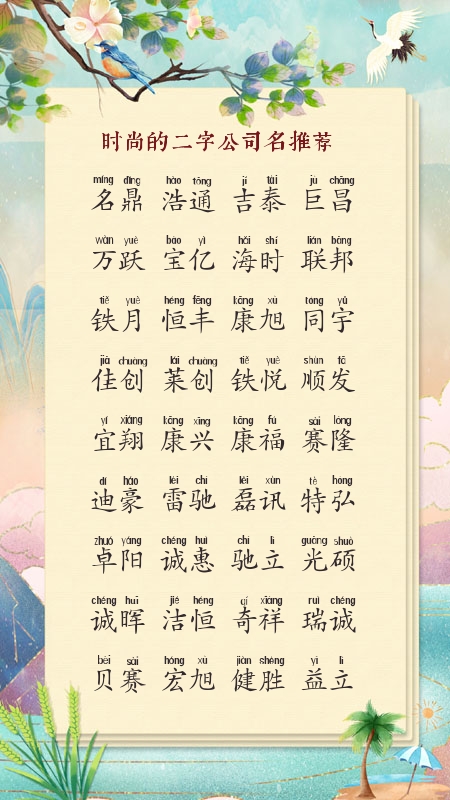 时尚的二字公司名推荐
míng dǐng hào tōng jí tài jù chāng
名鼎 浩通 吉泰 巨昌
wàn yuè bǎo yì hǎi shí lián bāng
万跃 宝亿 海时 联邦
tiě yuè héng fēng kāng xù tóng yǔ
铁月 恒丰 康旭 同宇
jiā chuàng lái chuàng tiě yuè shùn fā
佳创 莱创 铁悦 顺发
yí xiáng kāng xīng kāng fú sài lóng
宜翔 康兴 康福 赛隆
dí háo léi chí lěi xùn tè hóng
迪豪 雷驰 磊讯 特弘
zhuó yáng chéng huì chí lì guāng shuò
卓阳 诚惠 驰立 光硕
chéng huī jié héng qí xiáng ruì chéng
诚晖 洁恒 奇祥 瑞诚
bèi sài hóng xù jiàn shèng yì lì
贝赛 宏旭 健胜 益立